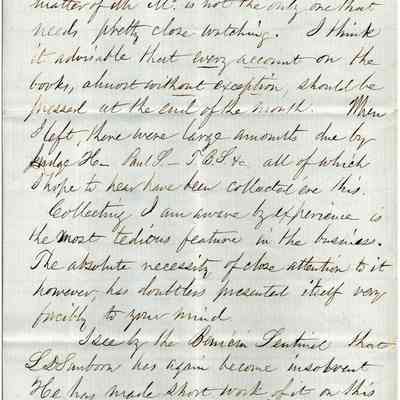 matter of Mr Mc. is not the only one that
needs pretty close watching. I think
it advisable that every account on the
books, almost without exception, should be
pressed at the end of the month. When
I left, there were large amounts due by
Judge H— Paul S— T.B.S &c all of which
I hope to hear have been collected ere this.
Collecting I am aware by experience is
the most tedious feature in the business.
The absolute necessity of close attention to it
however, has doubtless presented itself very
forcibly to your mind.
I see by the Benicia Sentinel that
L.D. Sanborn has again become insolvent
He has made short work of it on this